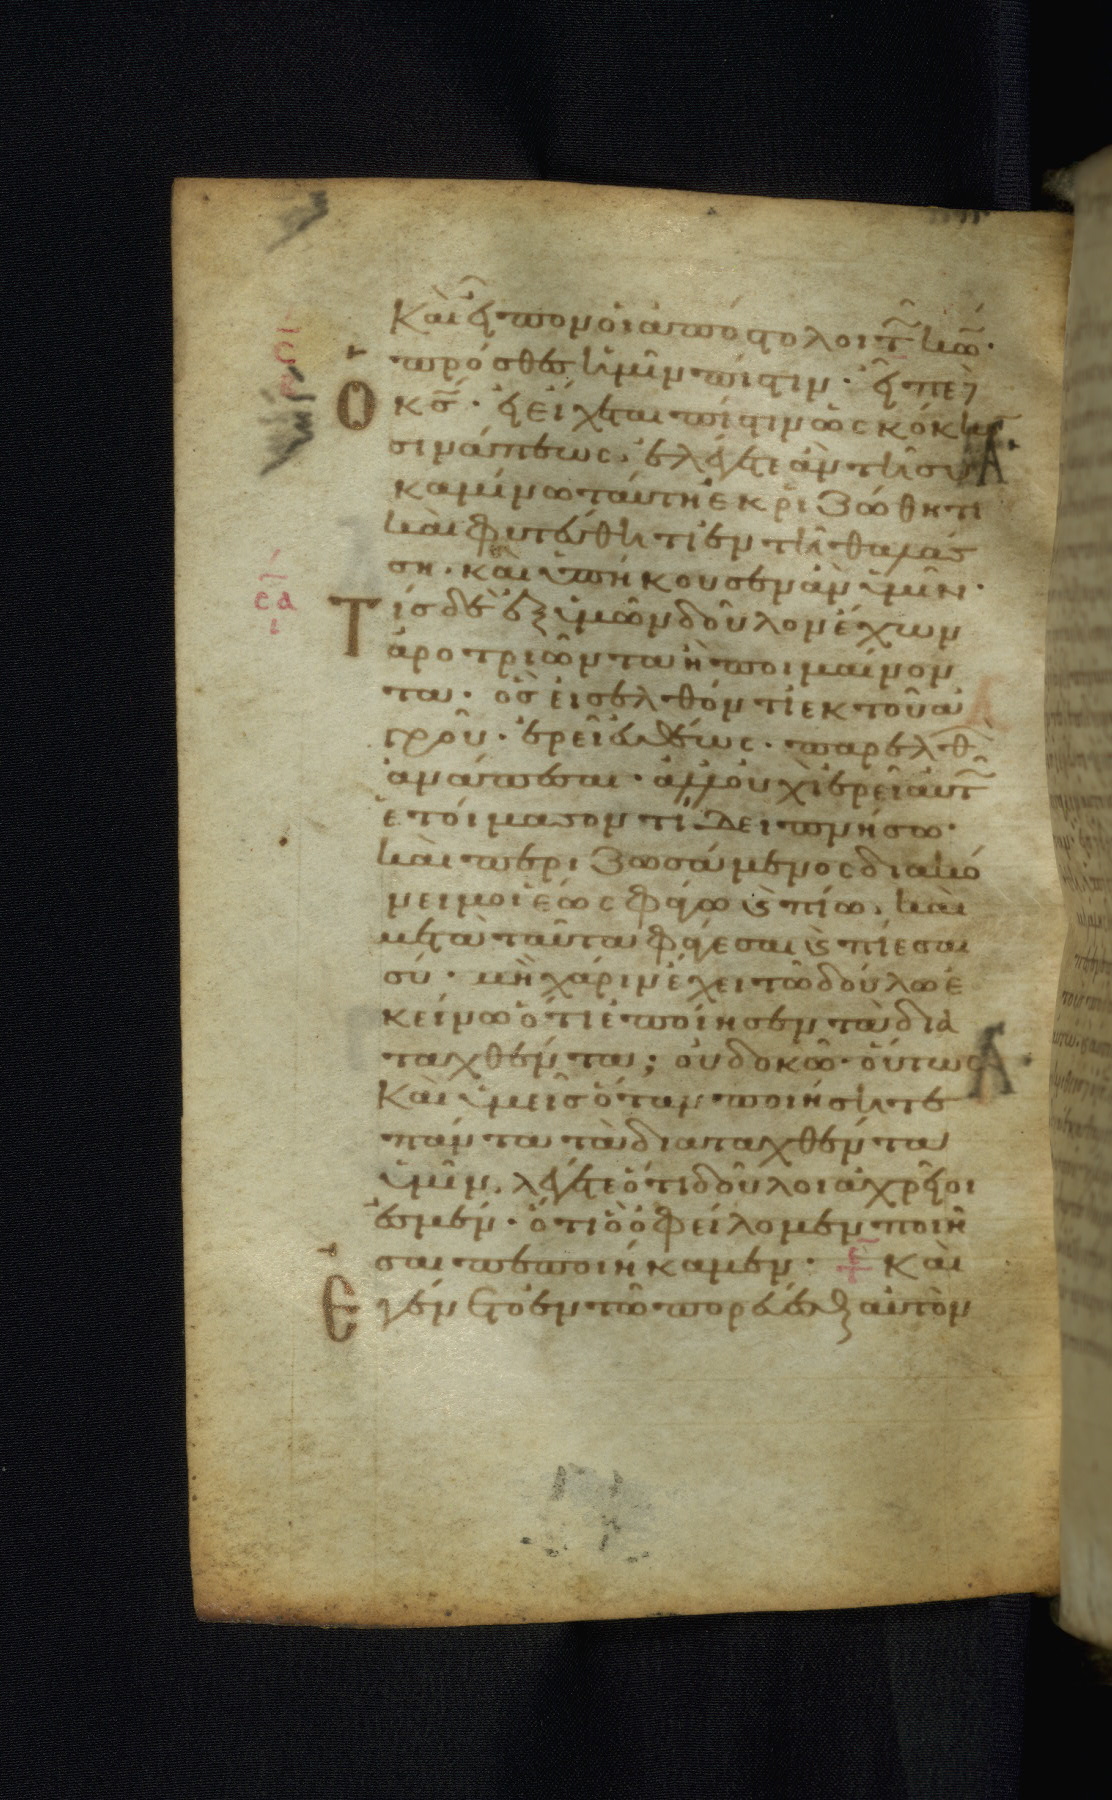 Καὶ εἶπον οἱ ἀπόστολοι τῶ κω̅·
πρόσθες ἡμῖν πίστιν· εἶπε δὲ
Ὁ κς̅· εἰ εἴχεται πίστιν ὡς κόκκον
σινάπεως· ἐλέγετε ἂν τῆ συ
καμίνω ταύτη ἐκριζώθητι
καὶ φυτεύθητι ἐν τῆ θαλάσ
ση· καὶ ὑπήκουσεν ἂν ὑμῖν·
Τίς δὲ ἐξ ὑμῶν δοῦλον ἔχων
ἀροτριῶντα ἢ ποιμαίνον
τα· ὃς εἰσελθόντι ἐκ τοῦ ἀ
γροῦ· ἐρεῖ εὐθέως· παρελθ
ἀνάπεσαι· ἀλλ οὐχὶ ἐρεῖ αὐτῶ
ἑτοίμασον τί δειπνήσω·
καὶ περιζωσάμενος διακό
νει μοι ἕως φάγω καὶ πίω· καὶ
μετὰ ταῦτα φάγεσαι καὶ πίεσαι
σύ· μὴ χάριν ἔχει τῶ δούλω ἐ
κείνω ὅτι ἐποίησεν τὰ δια
ταχθέντα; οὐ δοκῶ· οὕτως
Καὶ ὑμεῖς ὅταν ποιήσητε
πάντα τὰ διαταχθέντα
ὑμῖν· λέγετε ὅτι δοῦλοι ἀχρεῖοι
ἐσμέν· ὅτι ὃ ὀφείλομεν ποιῆ
σαι πεποιήκαμεν· Καὶ
Ἐγένετο ἐν τῶ πορεύεσθαι αὐτὸν